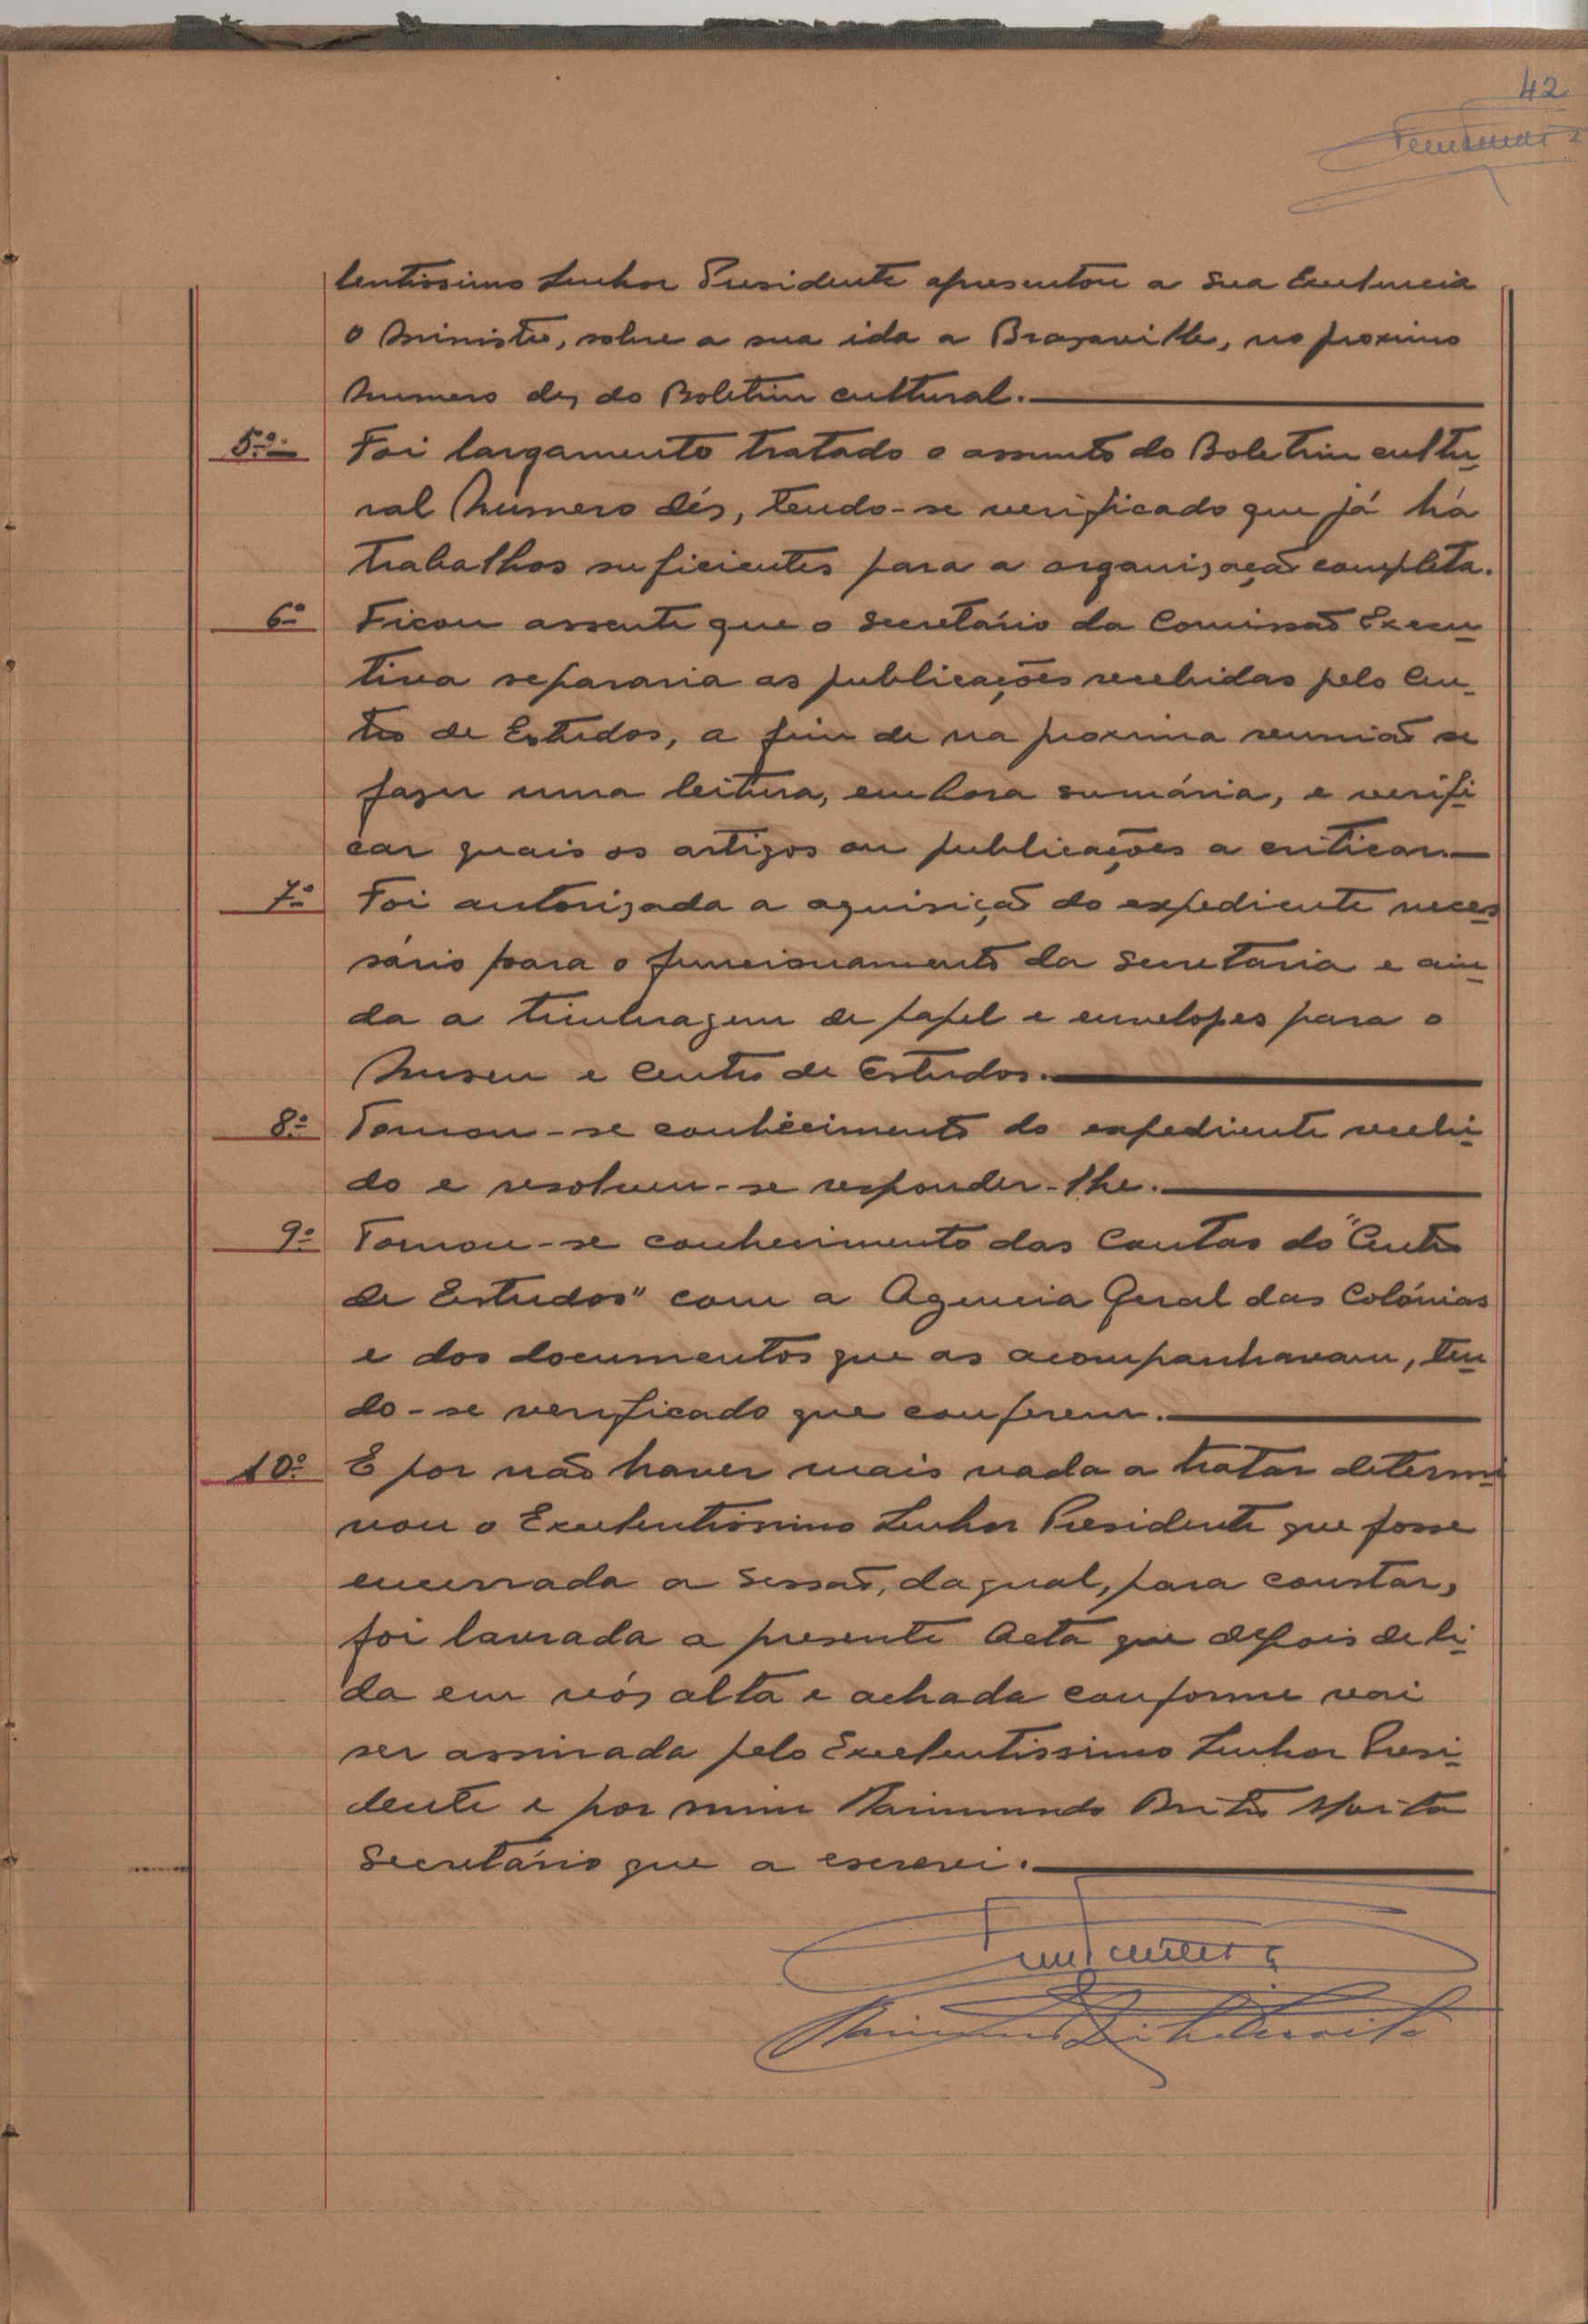 42
lentissimo Senhor Presidente apresentou a Sua Excelencia
o Ministro, sobre a sua ida a Brazaville, no proximo
Numero dez do Boletim cultural.
5.º- Foi largamente tratado o assunto do Boletim cultu-
ral Número dés, tendo-se verificado que já há
trabalhos suficientes para a organização completa.
6.º Ficou assente que o Secretário da Comissão Execu-
tiva separaria as publicações recebidas pelo Cen-
tro de Estudos, a fim de na proxima reunião se
fazer uma leitura, embora sumária, e verifi-
car quais os artigos ou publicações a criticar.
7.º Foi autorizada a aquisição do expediente neces-
sário para o funcionamento da Secretaria e ain-
da a timbragem de papel e envelopes para o
Museu e Centro de Estudos.
8.º Tomou-se conhecimento do expediente recebi-
do e resolveu-se responder-lhe.
9.º Tomou-se conhecimento das Contas do "Centro
de Estudos" com a Agencia Geral das Colónias
e dos documentos que as acompanhavam, ten-
do-se verificado que conferem.
10.º E por não haver mais nada a tratar determi-
nou o Excelentissimo Senhor Presidente que fosse
encerrada a Sessão, da qual, para constar,
foi lavrada a presente Acta que depois de li-
da em vós alta e achada conforme vai
ser assinada pelo Excelentissimo Senhor Presi-
dente e por mim Raimundo Brito
Secretário que a escrevi.